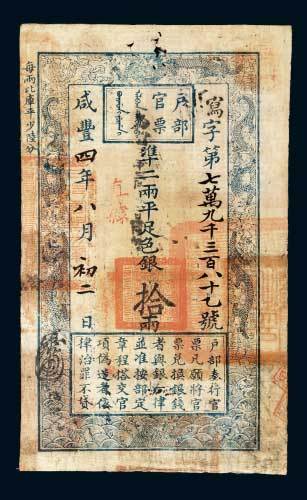 戶部
官票
寫字第七萬九千三百八十七號
準二兩平足色銀拾兩
咸豐四年八月初二日
每兩比庫平少陸分
戶部奏行官
票凡願將官
票兌換銀錢
者與銀一律
並准按部定
章程搭交官
項偽造者依
律治罪不貸